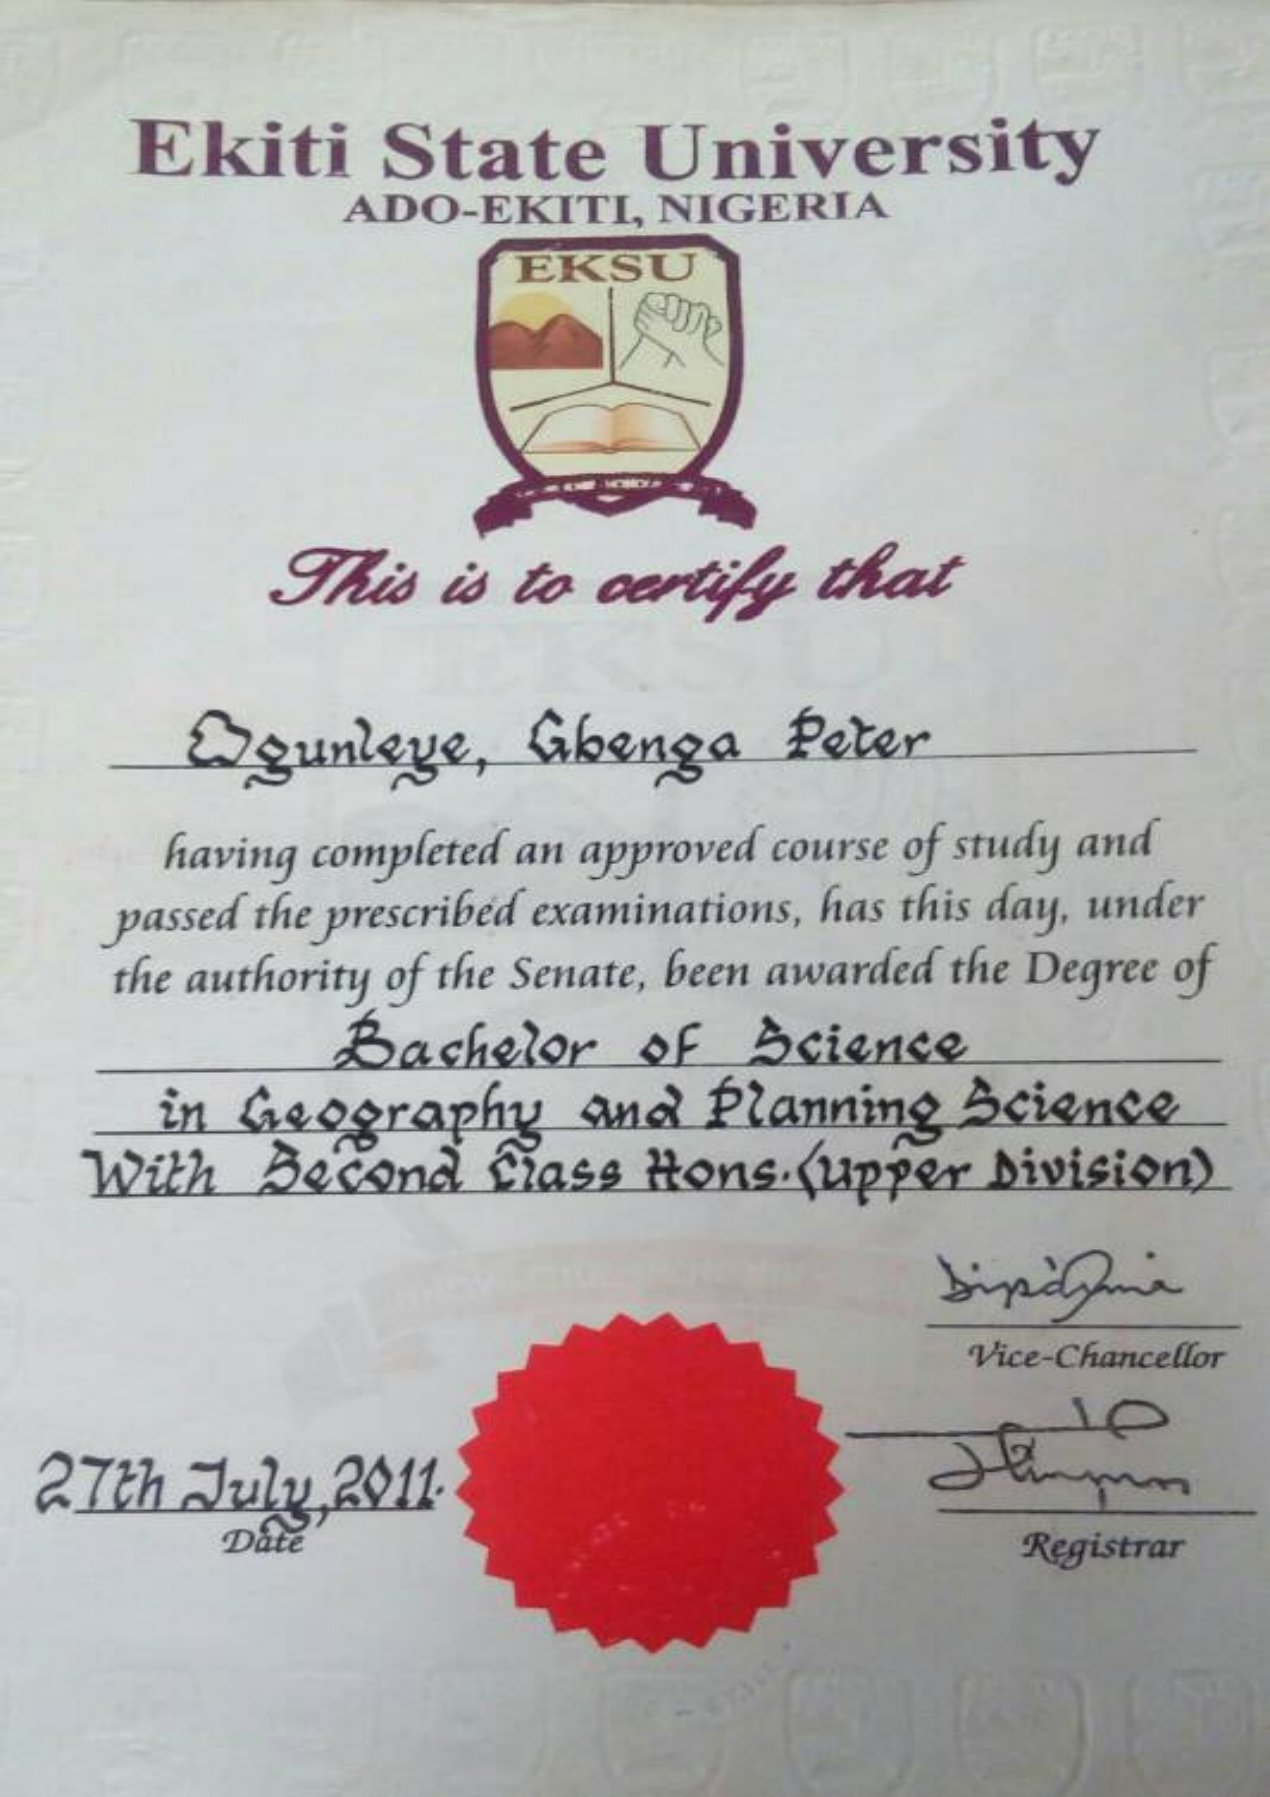 Ekiti State University
ADO-EKITI, NIGERIA
EKSU
This is to certify that
EKSU
Ogunleye, Gbenga Peter
having completed an approved course of study and
passed the prescribed examinations, has this day, under
the authority of the Senate, been awarded the Degree of
Bachelor of Science
in Geography and Planning Science
With Second Class Hons. (Upper Division)
Vice-Chancellor
27th July, 2011.
Date
Registrar